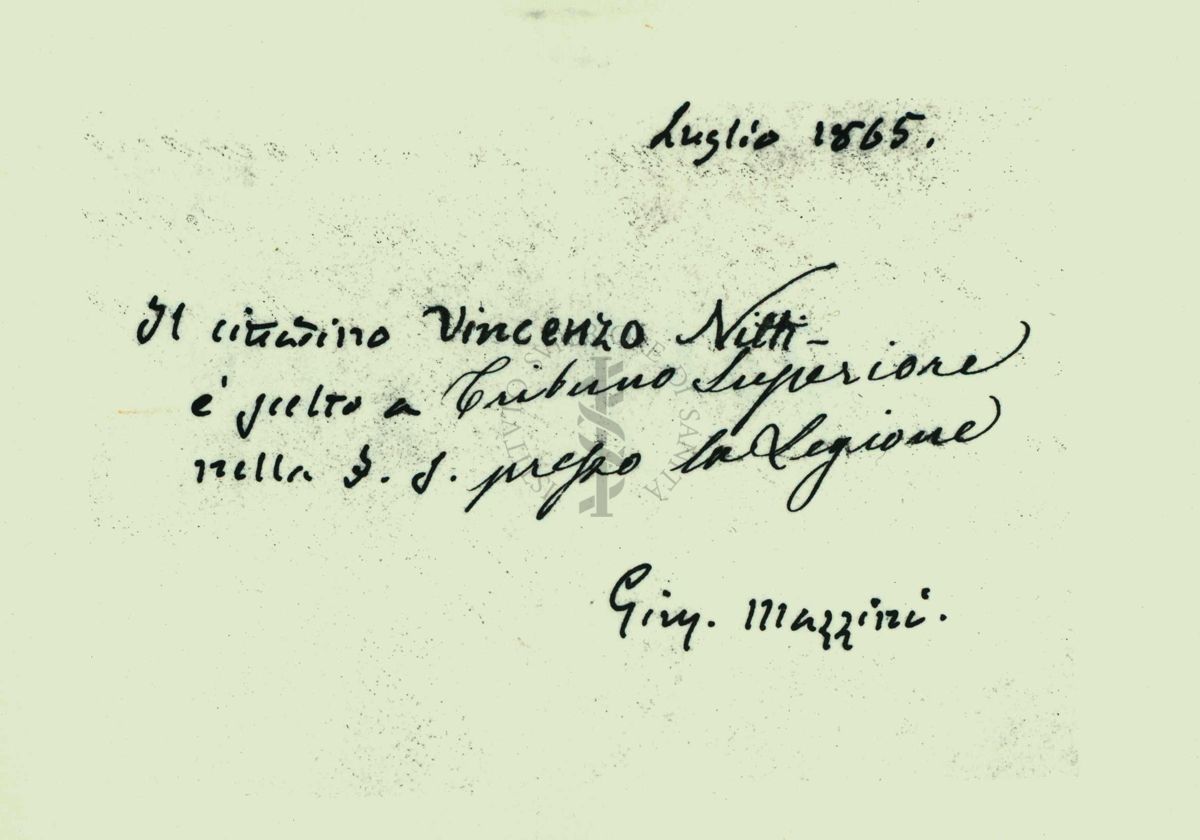 Luglio 1865.
Il cittadino Vincenzo Nitti
è scelto a Tribuno Superiore
nella presso la Legione
Mazzini.